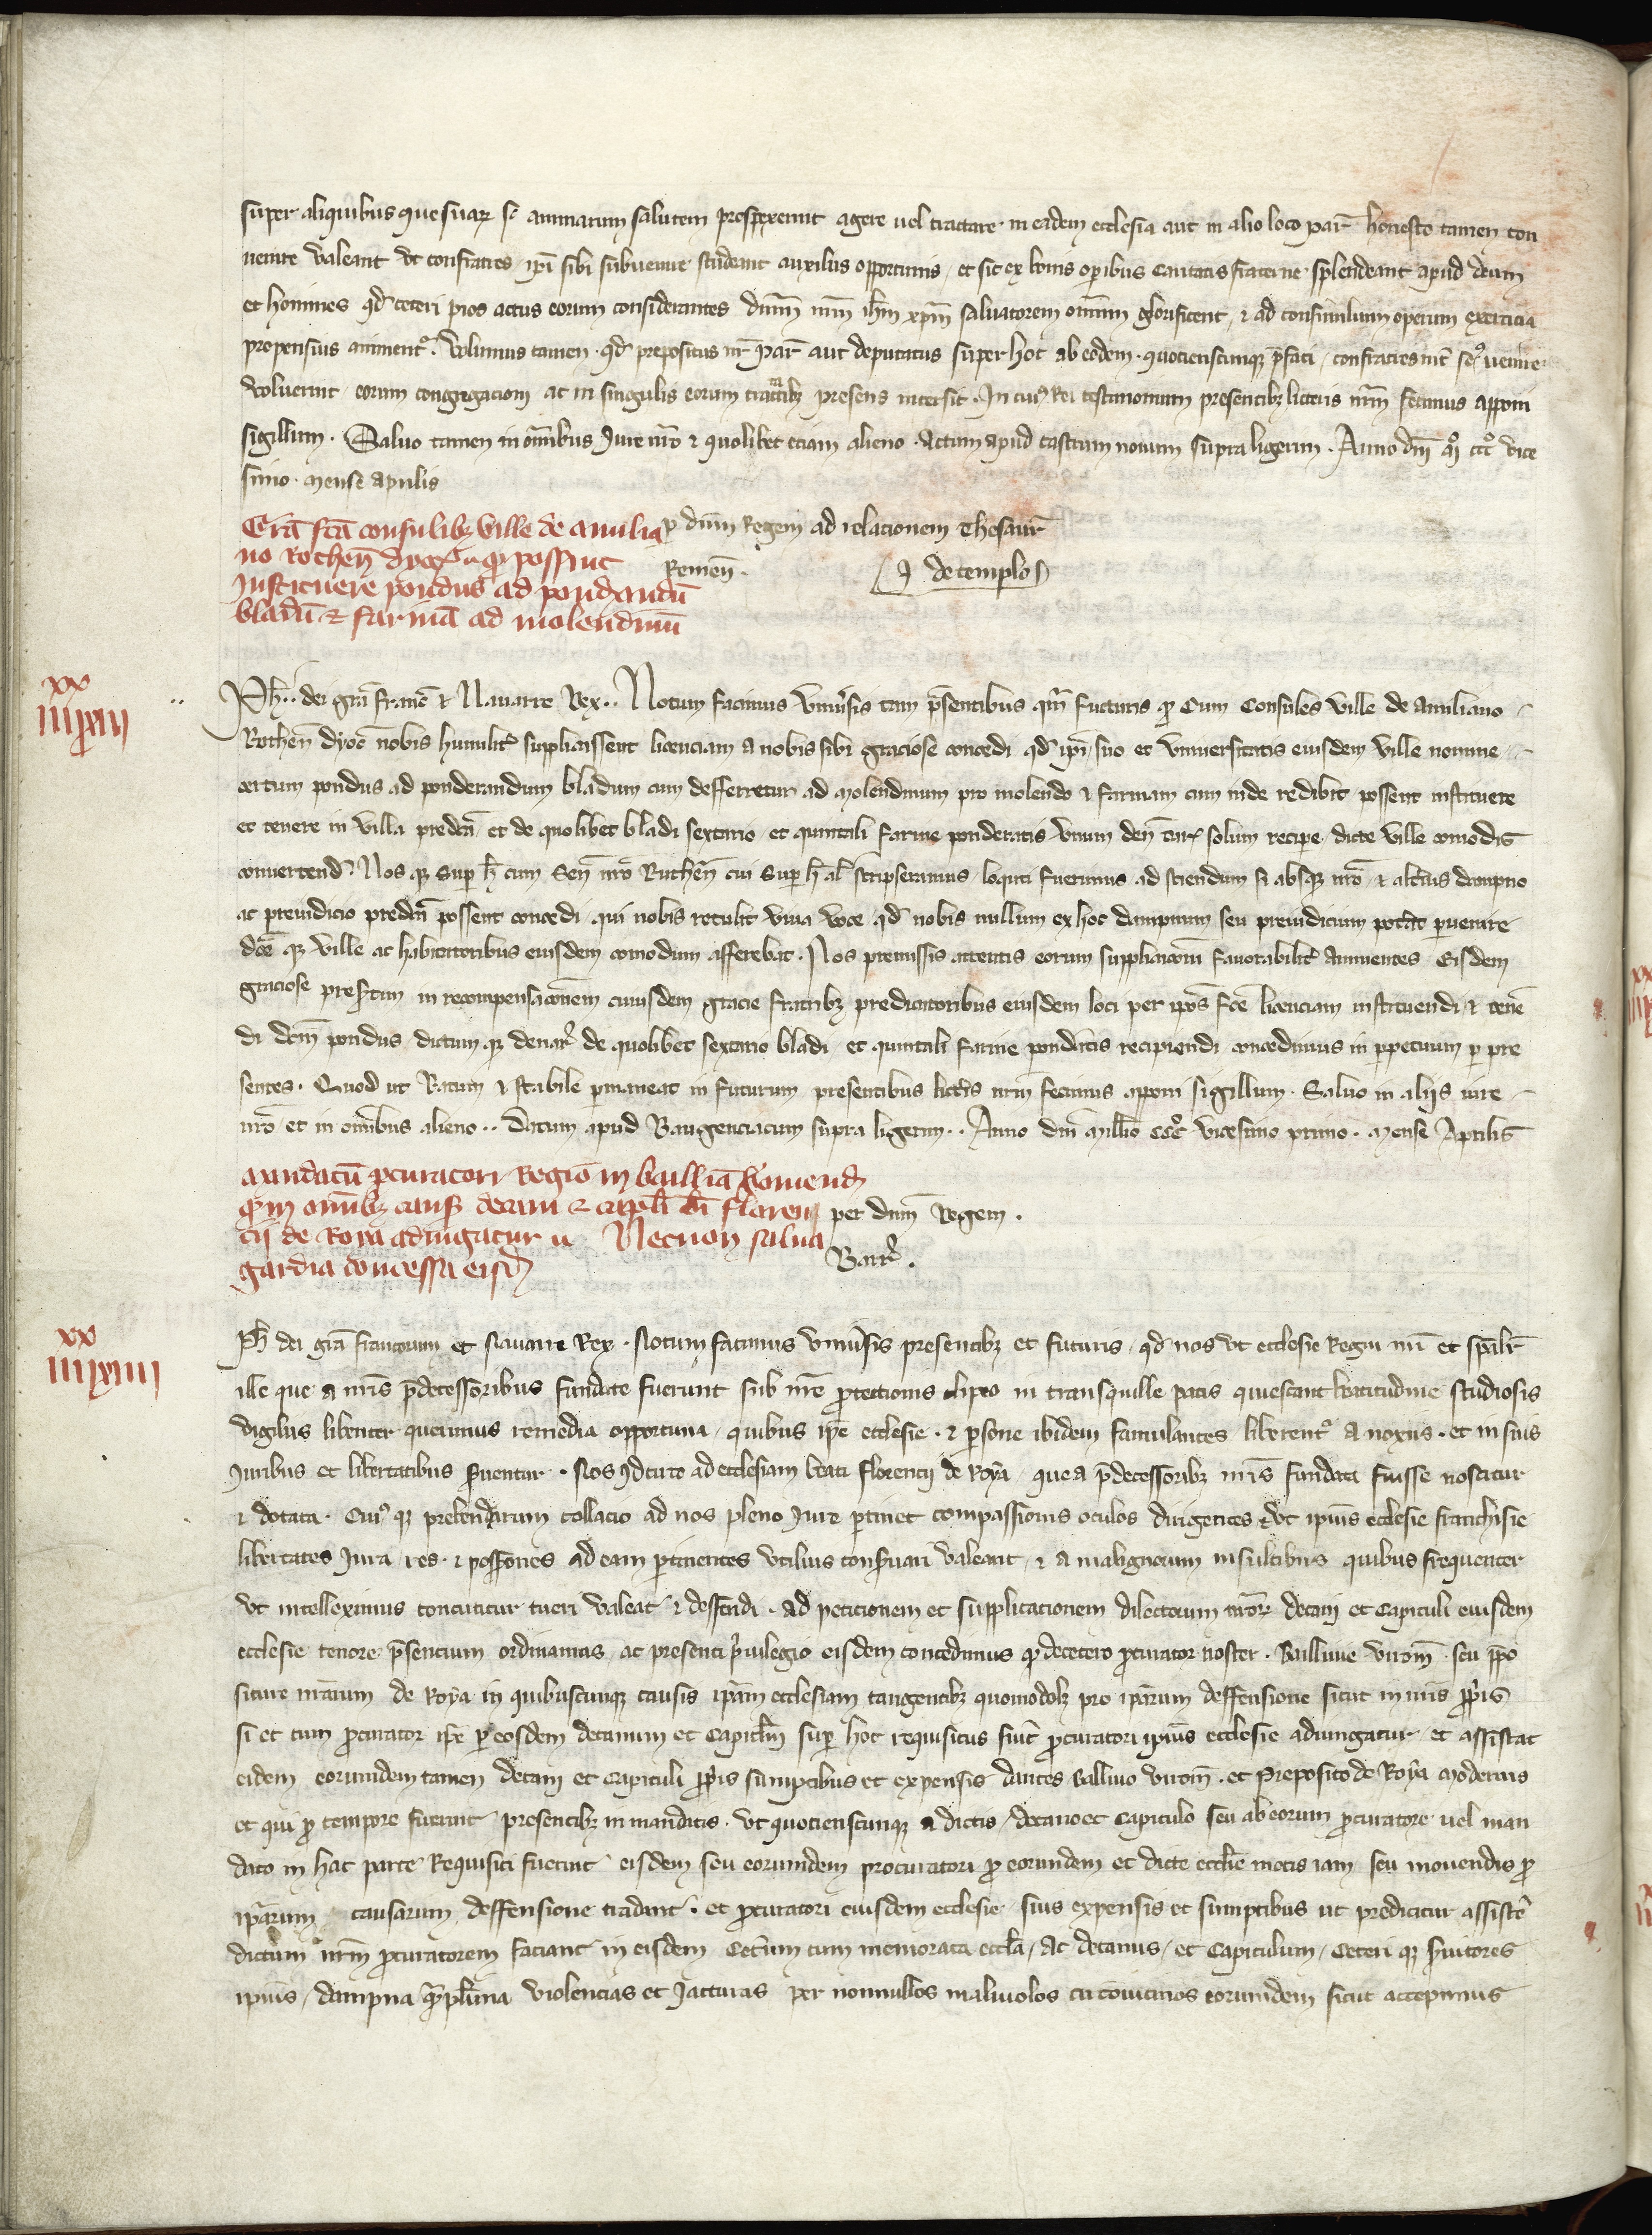 super aliquibus que suarz se animarum salutem prospexerint agere vel tractare in eadem ecclesia aut in alio loco par̃ honesto tamen con
uenire valeant vt confratres ip̃i sibi subuenire studeant auxiliis opportunis et sic ex bonis op̃ibus caritatis fraterne splendeant apud deum
et homines qd̃ ceteri pios actus eorum considerantes dñm nr̃m ih̃m xp̃m saluatorem om̃ium glorificent, ⁊ ad consimilium operum exercicia
propensius animentr. Volumus tamen qd̃ prepositus nr̃ par̃ aut deputatus super hoc ab eodem quotienscunqz p̃fati confratres uenire
voluerint eorum congregacioni ac in singulis eorum tractatibz presens intersit. In cuiꝰ Rei testimonium presentibz litteris nr̃m fecimus apponi
sigillum. Saluo tamen in om̃ibus Iure nr̃o ⁊ quolibet eciam alieno. Actum apud castrum nouum supra ligerim. Anno dñi mͦ cccͦ vice
simo mense aprilis
Cr̃a fc̃a consulibz ville de amilia
no Rothen̄ dyoc̃ qꝫ possint
Instituere pondus ad pondandū
bladū ⁊ farinā ad molendinū
p dñm Regem ad relacionem Thesaur̃
Remeñ.
J de templo
xx
iiiixiii
Ph̃.. dei gr̃a franc̃ ⁊ Nauarre Rex.. Notum facimus vniu̾sis tam p̃sentibus qm̃ futuris qꝫ Cum Consules ville de Amiliano
Rothen̄ dyoc̃ nobis humilit̾ supplicassent licenciam a nobis sibi graciose concedi qd̃ ip̃i suo et vniuersitatis eiusdem ville nomine
certum pondus ad ponderandum bladum cum defferretur ad molendinum pro molendo ⁊ farinam cum inde redibit possent instituere
et tenere in villa predc̃a et de quolibet bladi sextario et quintali farine ponderatis vnum den̄ tur̃ solum recipe dicte ville comodis
conuertend̃. Nos qz sup h̃ cum Sen̄ nr̃o Ruthen̄ cui sup h̃ al̃ scripseramus loquti fuerimus ad sciendum si absqz nr̃o ⁊ alt̾ius dampno
ac preiudicio predc̃a possent concedi qui nobis retulit viua voce qd̃ nobis nullum ex hoc dampnum seu preiudicium pot̾at p̱uenire
dc̃e qz ville ac habitatoribus eiusdem comodum afferebat. Nos premissis attentis eorum supplicacõni fauorabilit̾ annuentes Eisdem
graciose presertim in recompensacõnem cuiusdem gracie fratribz predicatoribus eiusdem loci per ip̃os fc̃e licenciam instituendi ⁊ tenen̄
di dc̃m pondus dictum qz denar̃ de quolibet sextario bladi et quintali farine pond̾atis recipiendi concedimus in p̱petuum p̱ pre
sentes. Quod ut Ratum ⁊ stabile p̱maneat in futurum presentibus litt̾is nr̃m fecimus apponi sigillum. Saluo in aliis iure
nr̃o et in om̃ibus alieno.. Datum apud Baugenciacum supra ligerim.. Anno dñi mill̃o cccͦ vicesimo primo. mense Aprilis
andatū p̱curatori Regio in bailliā viromend̾
qꝫ in om̃ibz causis decani ⁊ capl̃i b̃i floren
cii de Roya adiugatur Necnon salua
gardia concessa eisd̾
per dñm Regem.
Barr̾.
xx
iiiixiiii
Ph̃ dei gr̃a francorum et Nauarre Rex. Notum facimus vniu̾sis presentibz et futuris qd̃ nos vt ecclesie Regni nr̃i et sp̃alit̾
ille que a nr̃is p̃decessoribus fundate fuerunt sub nr̃e protectionis clipeo in transquille pacis quiescant beatitudine studiosis
vigiliis libenter querimus remedia opportuna quibus ip̃e ecclesie ⁊ p̱sone ibidem famulantes liberentꝰ a noxiis et in suis
Iuribus et libertatibus p̱seruentur. Nos Idcirco ad ecclesiam beati florencij de Roya que a p̃decessoribz nr̃is fundata fuisse noscitur
⁊ dotata. Cuiꝰ qz prebendarum collacio ad nos pleno Iure p̱tinet compassionis oculos dirigentes vt ipiꝰ ecclesie franchisie
libertates Iura res ⁊ poss̃ones ad eam p̱tinentes vtilius conseruari valeant ⁊ a malignorum insultibus quibus frequenter
vt intelleximus concutitur tueri valeat ⁊ deffendi. ad peticionem et supplicacionem dilectorum nr̃orz decani et Capituli eiusdem
ecclesie tenore p̃sencium ordinamus ac presenti p̾uilegio eisdem concedimus qꝫ decetero p̱curator noster. Balliuie virom̃. seu p̃po
siture nr̃arum de Roya in quibuscunqz causis ip̃am ecclesiam tangentibz quomodolz pro ip̃arum deffensione sicut in nr̃is p̱priis
si et cum p̱curator ip̃e p̱ eosdem decanum et Capitlm̃ sup̱ hoc requisitus fu̾it p̱curatori ipiꝰ ecclesie adiungatur et assistat
eidem eorumdem tamen decani et Capituli p̱priis sumptibus et expensis dantes balliuo virom̃. et preposito de Roya modernis
et qui p̱ tempore fuerint presentibz in mandatis. vt quotienscunqz a dictis decano et Capitulo seu ab eorum p̱curatore vel man
dato in hac parte Requisiti fuerint eisdem seu eorumdem procuratori p̱ eorumdem et dicte eccl̃ie motis iam seu mouendis p̱
ip̃arum causarum deffensione tradant. et p̱curatori eiusdem ecclesie suis expensis et sumptibus ut predicitur assist̾e
dictum nr̃m p̱curatorem faciant in eisdem Cet̾um cum memorata eccl̃a ac decanus et Capitulum Ceteri qz s̾uitores
ipiꝰ dampna qꝫplurima violencias et Iacturas per nonnullos maliuolos cū cōuicinos eorumdem sicut accepimus